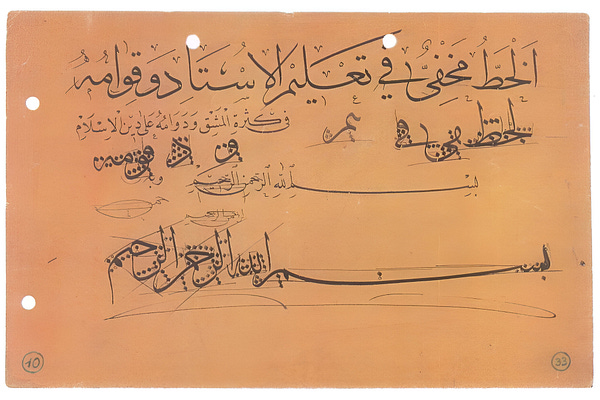 اَلْخَطُّ مَخْفِيٌّ فِي تَعْلِيمِ الْاُسْتَاذِ وَقِوَامُهُ
فِي كَثْرَةِ الْمَشْقِ وَدَوَامُهُ عَلَى دِينِ الْاِسْلَامِ
الخط مخفي في
بِسْمِ اللهِ الرَّحْمٰنِ الرَّحِيمِ
بسم الله الرحمن الرحيم
10
33